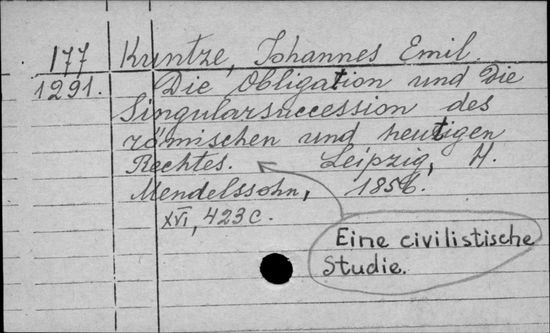 177 Kuntze, Johannes Emil.
1291. Die Obligation und Die
Singularsuccession des
römischen und heutigen
Rechtes. Leipzig, H.
Mendelssohn, 1856.
XVI, 423 c.
Eine civilistische
Studie.